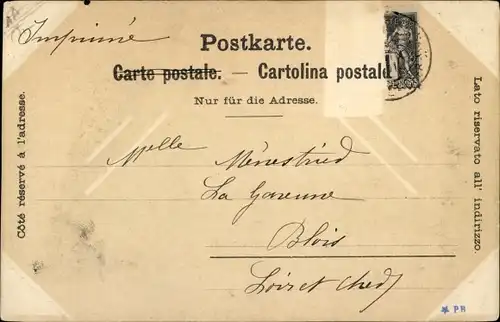 Imprimé
Postkarte.
Carte postale. — Cartolina postale
Nur für die Adresse.
Côté réservé à l'adresse.
Lato riservato all' indirizzo.
Mlle
La Garenne
Blois
Loir et Cher
PB